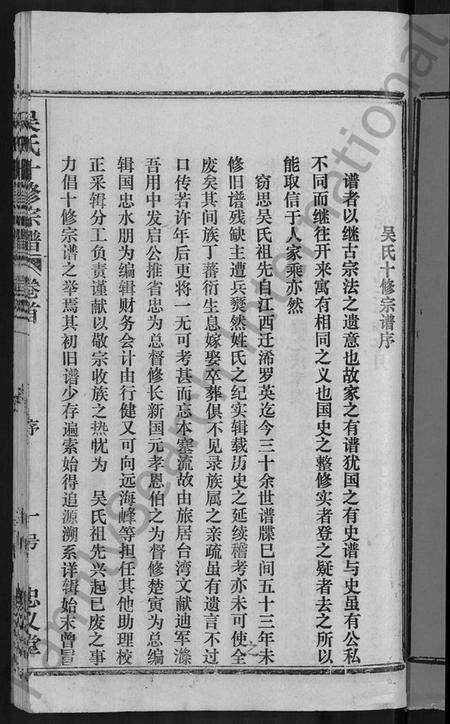 吴氏十修宗谱序
谱者以继古宗法之遗意也故家之有谱犹国之有史谱与史虽有公私
不同而继往开来寓有相同之义也国史之整修实者登之疑者去之所以
能取信于人家乘亦然
窃思吴氏祖先自江西迁浠罗英迄今三十余世谱牒已间五十三年未
修旧谱残缺主遭兵燹然姓氏之纪实辑载历史之延续稽考亦未可使全
废矣其间族丁蕃衍生息嫁娶卒葬俱不见录族属之亲疏虽有遗言不过
口传若许年后更将一无可考甚而忘本塞流故由旅居台湾文献迪军滌
吾用中发启公推省忠为总督修长新国元孝恩伯之为督修楚寅为总编
辑国忠水朋为编辑财务会计由行健又可向远海峰等担任其他助理校
正采辑分工负责谨献以敬宗收族之热忱为 吴氏祖先兴起已废之事
力倡十修宗谱之举焉其初旧谱少存遍索始得追源溯系详辑始末曾
吴氏十修宗谱 卷首 序 一号 忠义堂